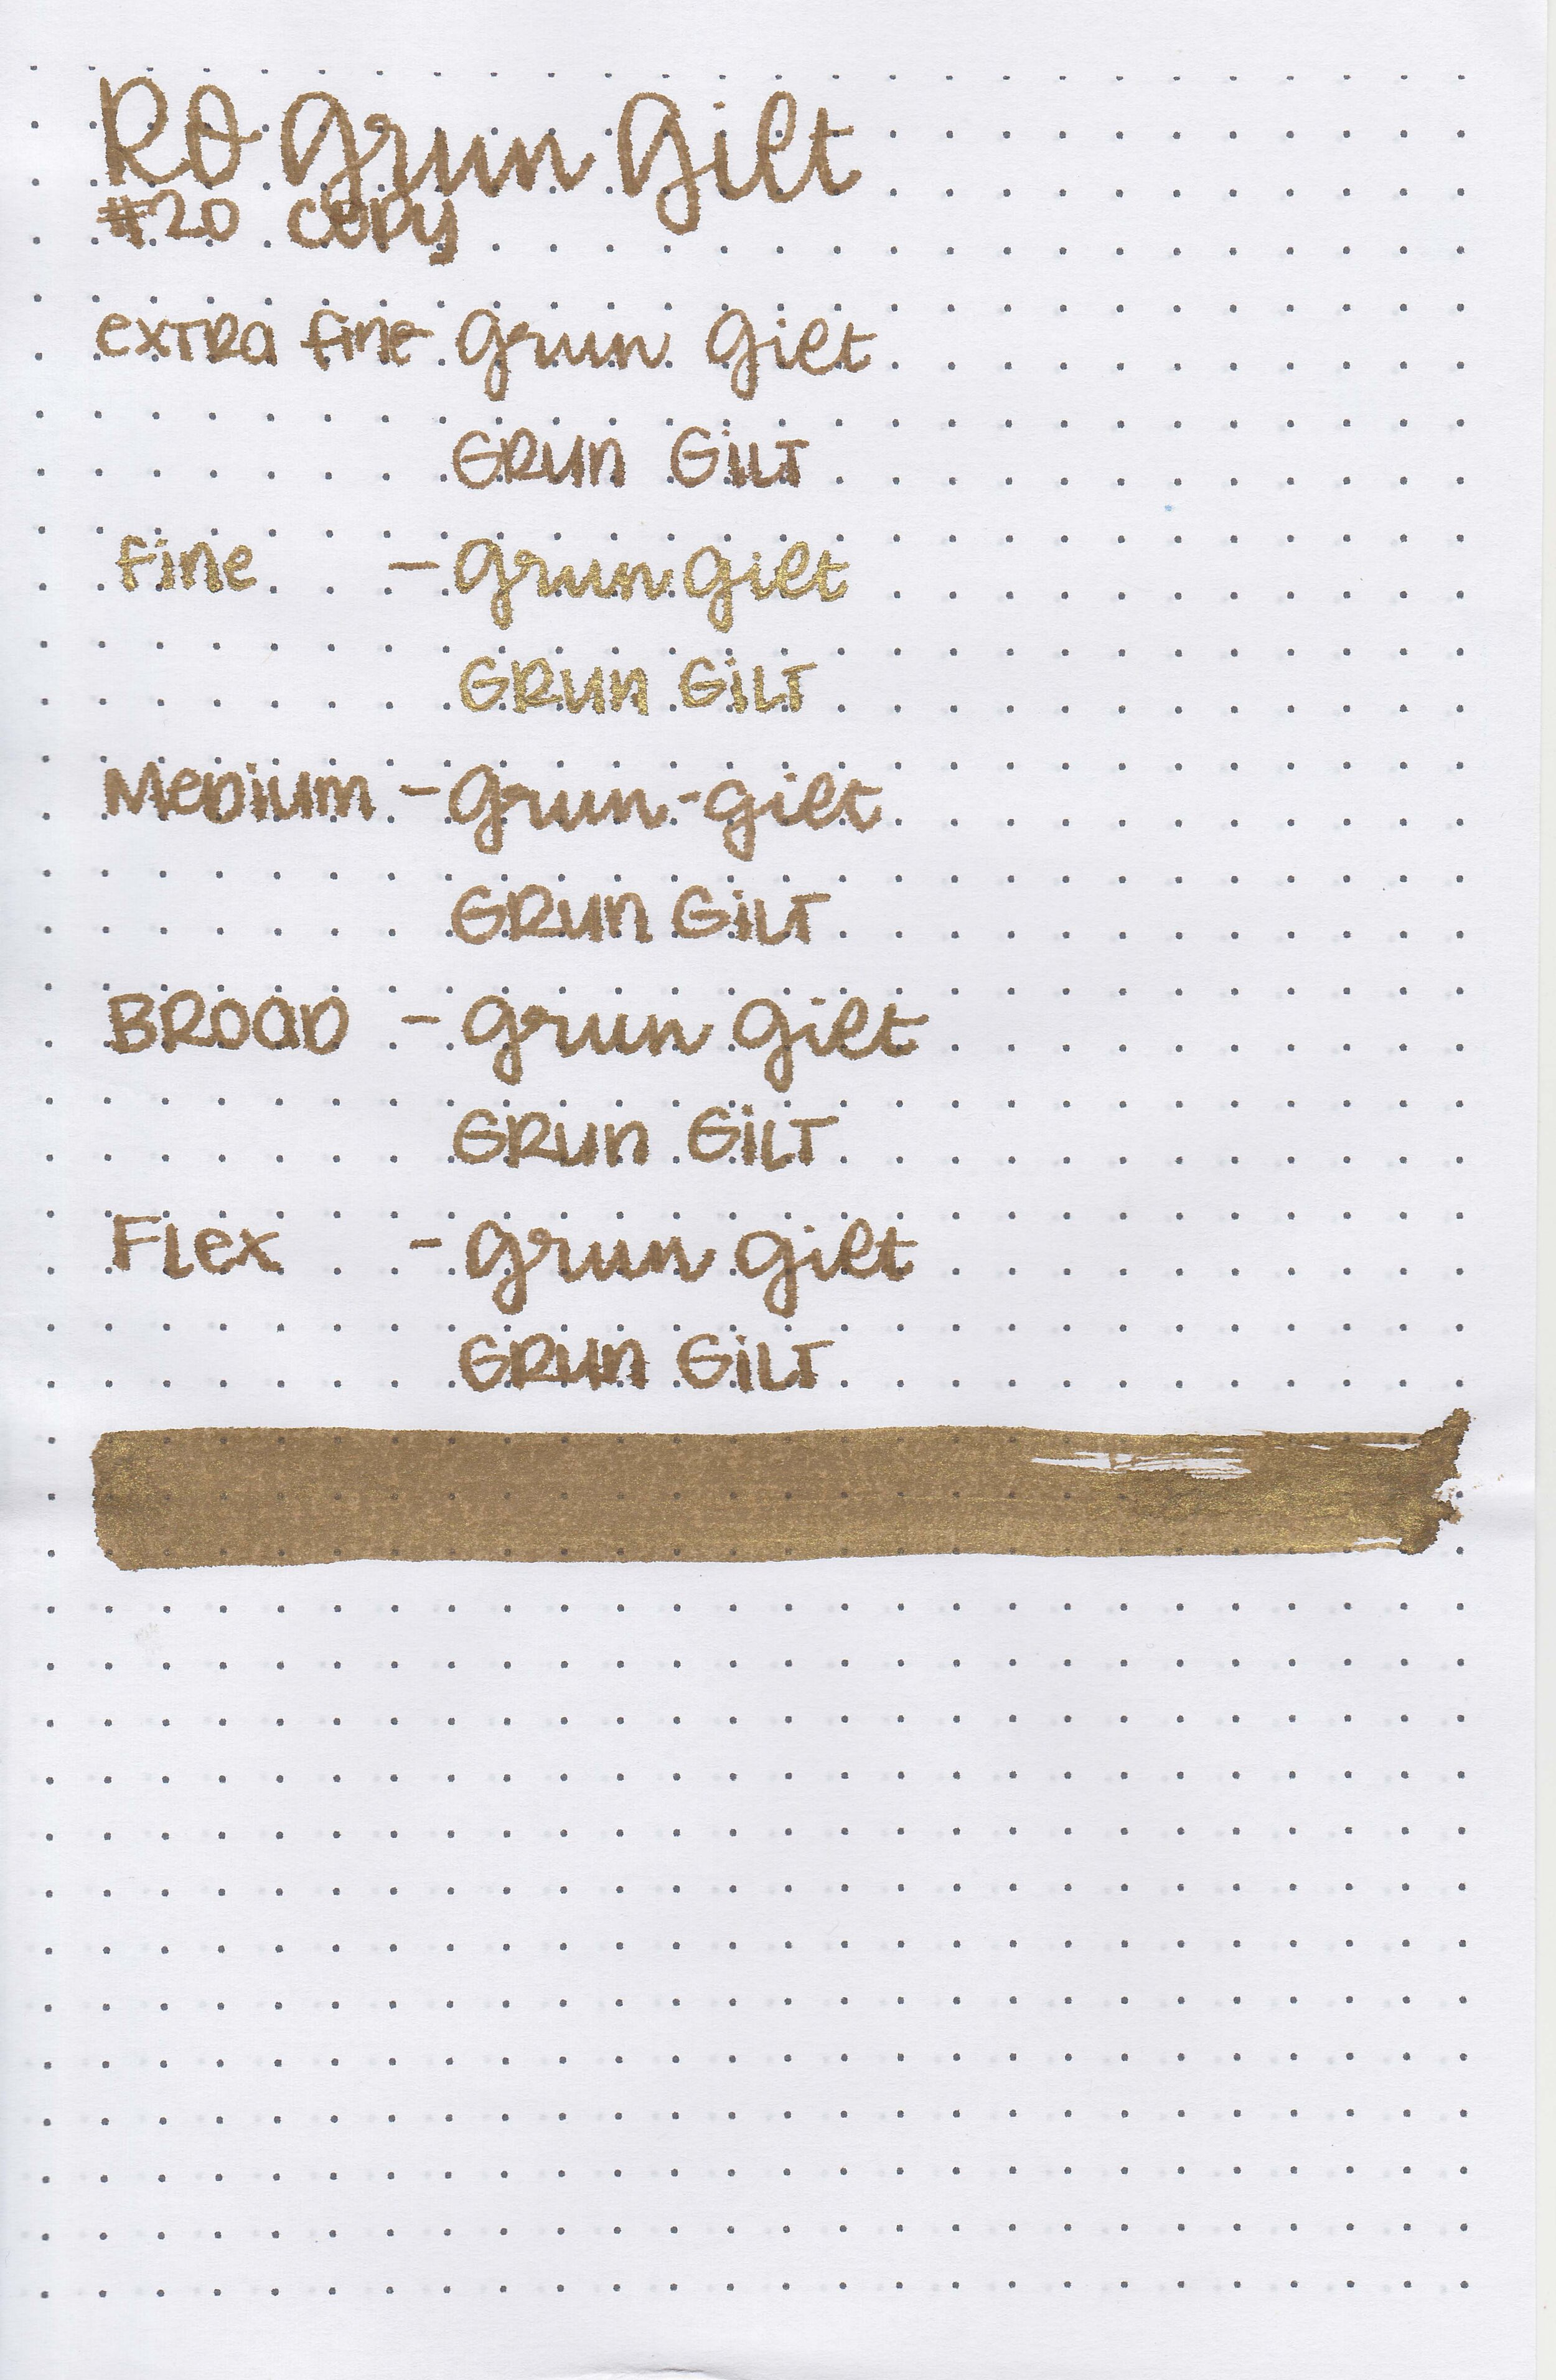 RO Grun Gilt
#20 COPY
extra fine - Grun Gilt
GRUN GILT
fine - Grun Gilt
GRUN GILT
Medium - Grun-gilt
GRUN GILT
BROAD - Grun Gilt
GRUN GILT
Flex - Grun Gilt
GRUN GILT